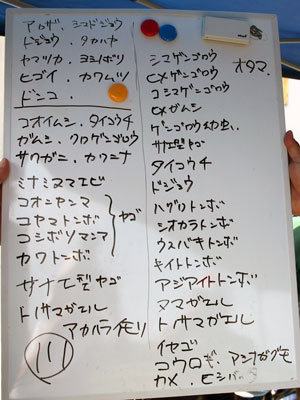 アカザ、シマドジョウ
ドジョウ、タカハヤ
ヤマツカ、ヨシノボリ
ヒゴイ、カワムツ
ドンコ、
コオイムシ、タイコウチ
ガムシ、クロゲンゴロウ
サワガニ、カワニナ
ミナミヌマエビ
コオニヤンマ
コヤマトンボ
コシボソヤンマ
カワトンボ
ヤゴ
サナエ型ヤゴ
トノサマガエル
アカハライモリ
川
シマゲンゴロウ
ヒメゲンゴロウ
オタマ、
コシマゲンゴロウ
ヒメガムシ
ゲンゴロウ幼虫、
サナエ型ヤゴ
タイコウチ
ドジョウ
ハグロトンボ
シオカラトンボ
ウスバキトンボ
キイトトンボ
アジアイトトンボ
ヌマガエル
トノサマガエル
イヤゴ
コウロギ、アシナガグモ
カメ、ヒシバッタ